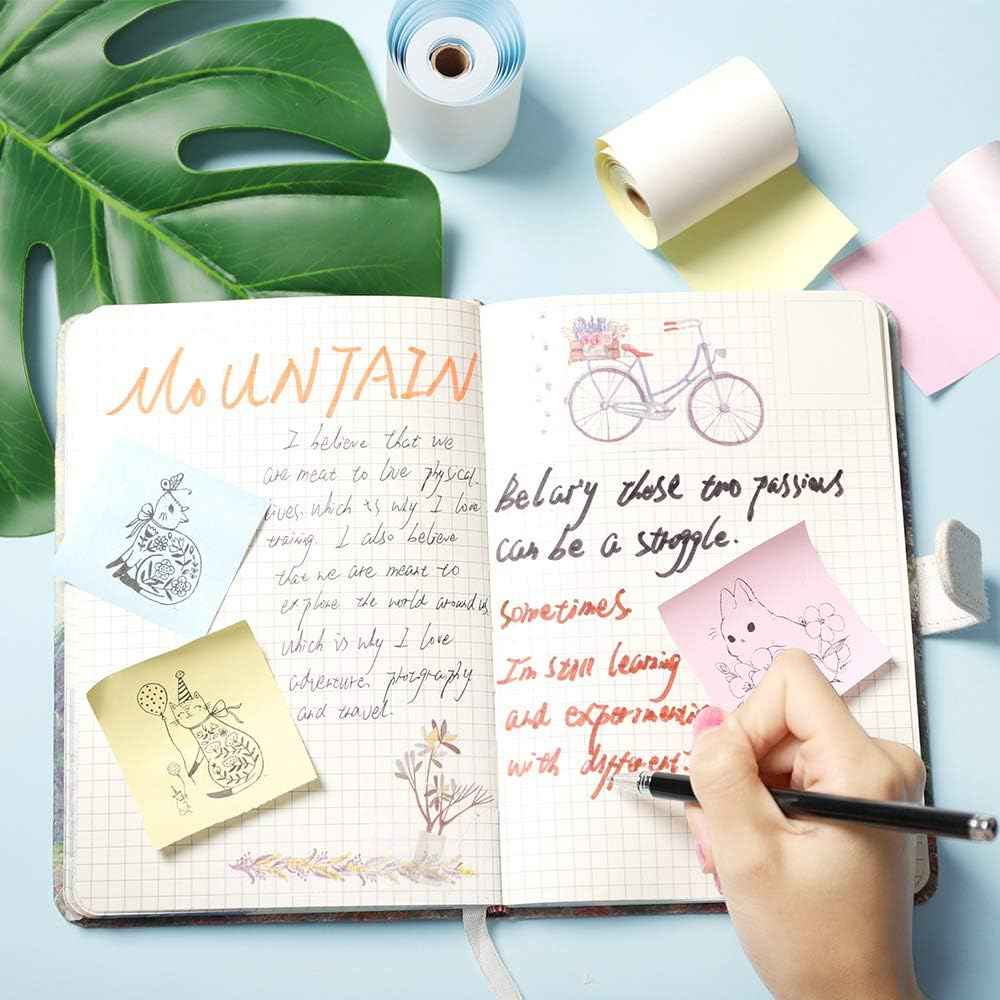 MoUNTAIN
I believe that we
are meat to love physical
lives. Which is why I love
traing. I also believe
that we are meant to
explore the world around us
which is why I love
adventure, protgraphy
and travel.
Belary these two passions
can be a stroggle.
sometimes.
I'm still learning
and experimentic
with different